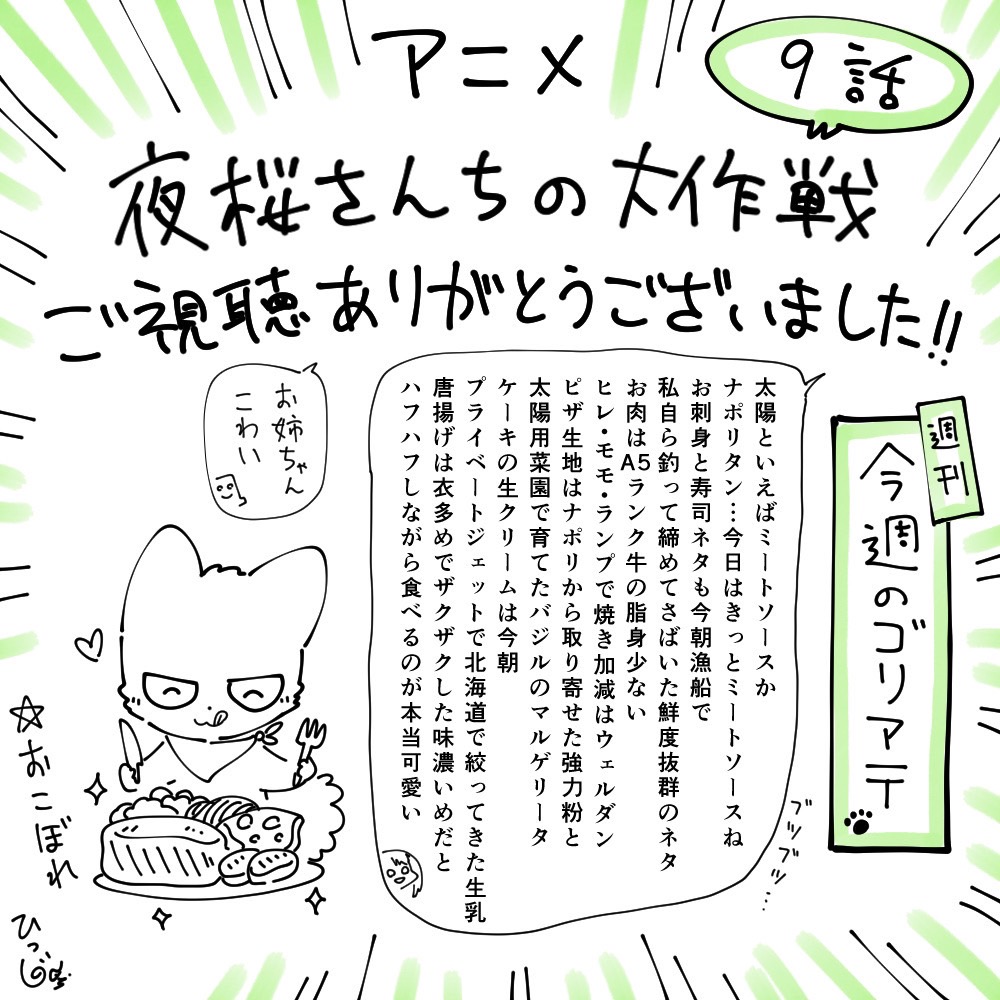 アニメ
9話
夜桜さんちの大作戦
ご視聴ありがとうございました!!
週刊
今週のゴリアテ
太陽といえばミートソースか
ナポリタン…今日はきっとミートソースね
お刺身と寿司ネタも今朝漁船で
私自ら釣って締めてさばいた鮮度抜群のネタ
お肉はA5ランク牛の脂身少ない
ヒレ・モモ・ランプで焼き加減はウェルダン
ピザ生地はナポリから取り寄せた強力粉と
太陽用菜園で育てたバジルのマルゲリータ
ケーキの生クリームは今朝
プライベートジェットで北海道で絞ってきた生乳
唐揚げは衣多めでザクザクした味濃いめだと
ハフハフしながら食べるのが本当可愛い
ブツブツ…
お姉ちゃん
こわい
☆おこぼれ
ひつじ